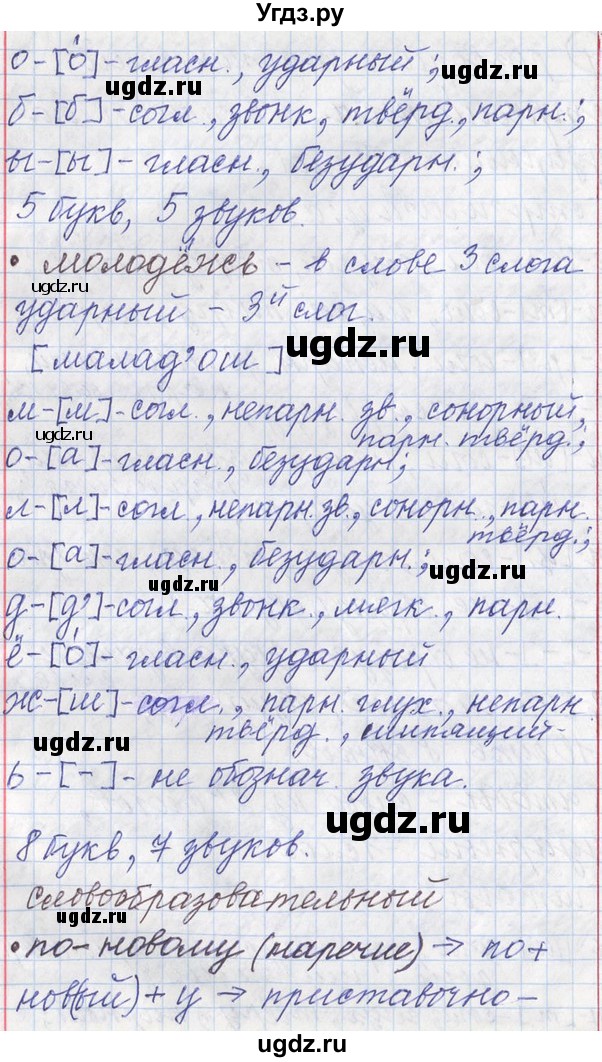 Угдз.ру
о-[о́]-гласн., ударный;
ugdz.ru ugdz.ru
б-[б]-согл., звонк, твёрд., парн.;
ы-[ы]-гласн., безударн.;
ugdz.ru ugdz.ru
5 букв, 5 звуков.
• молодёжь - в слове 3 слога
ugdz.ru
ударный - 3й слог.
ugdz.ru
[малад’ош]
м-[м]-согл., непарн. зв., сонорный,
парн. твёрд.;
ugdz.ru
о-[а]-гласн., безударн;
ugdz.ru
л-[л]-согл., непарн. зв., сонорн., парн.
твёрд.;
о-[а]-гласн., безударн.;
ugdz.ru ugdz.ru
д-[д’]-согл., звонк., мягк., парн.
ё-[о́]-гласн., ударный
ugdz.ru
ж-[ш]-согл., парн. глух., непарн.
твёрд., шипящий-
ugdz.ru
ь-[-]-не обознач. звука.
ugdz.ru
8 букв, 7 звуков.
словообразовательный
ugdz.ru
• по-новому (наречие) → по+
ugdz.ru
нов(ый)+у → приставочно-
ugdz.ru